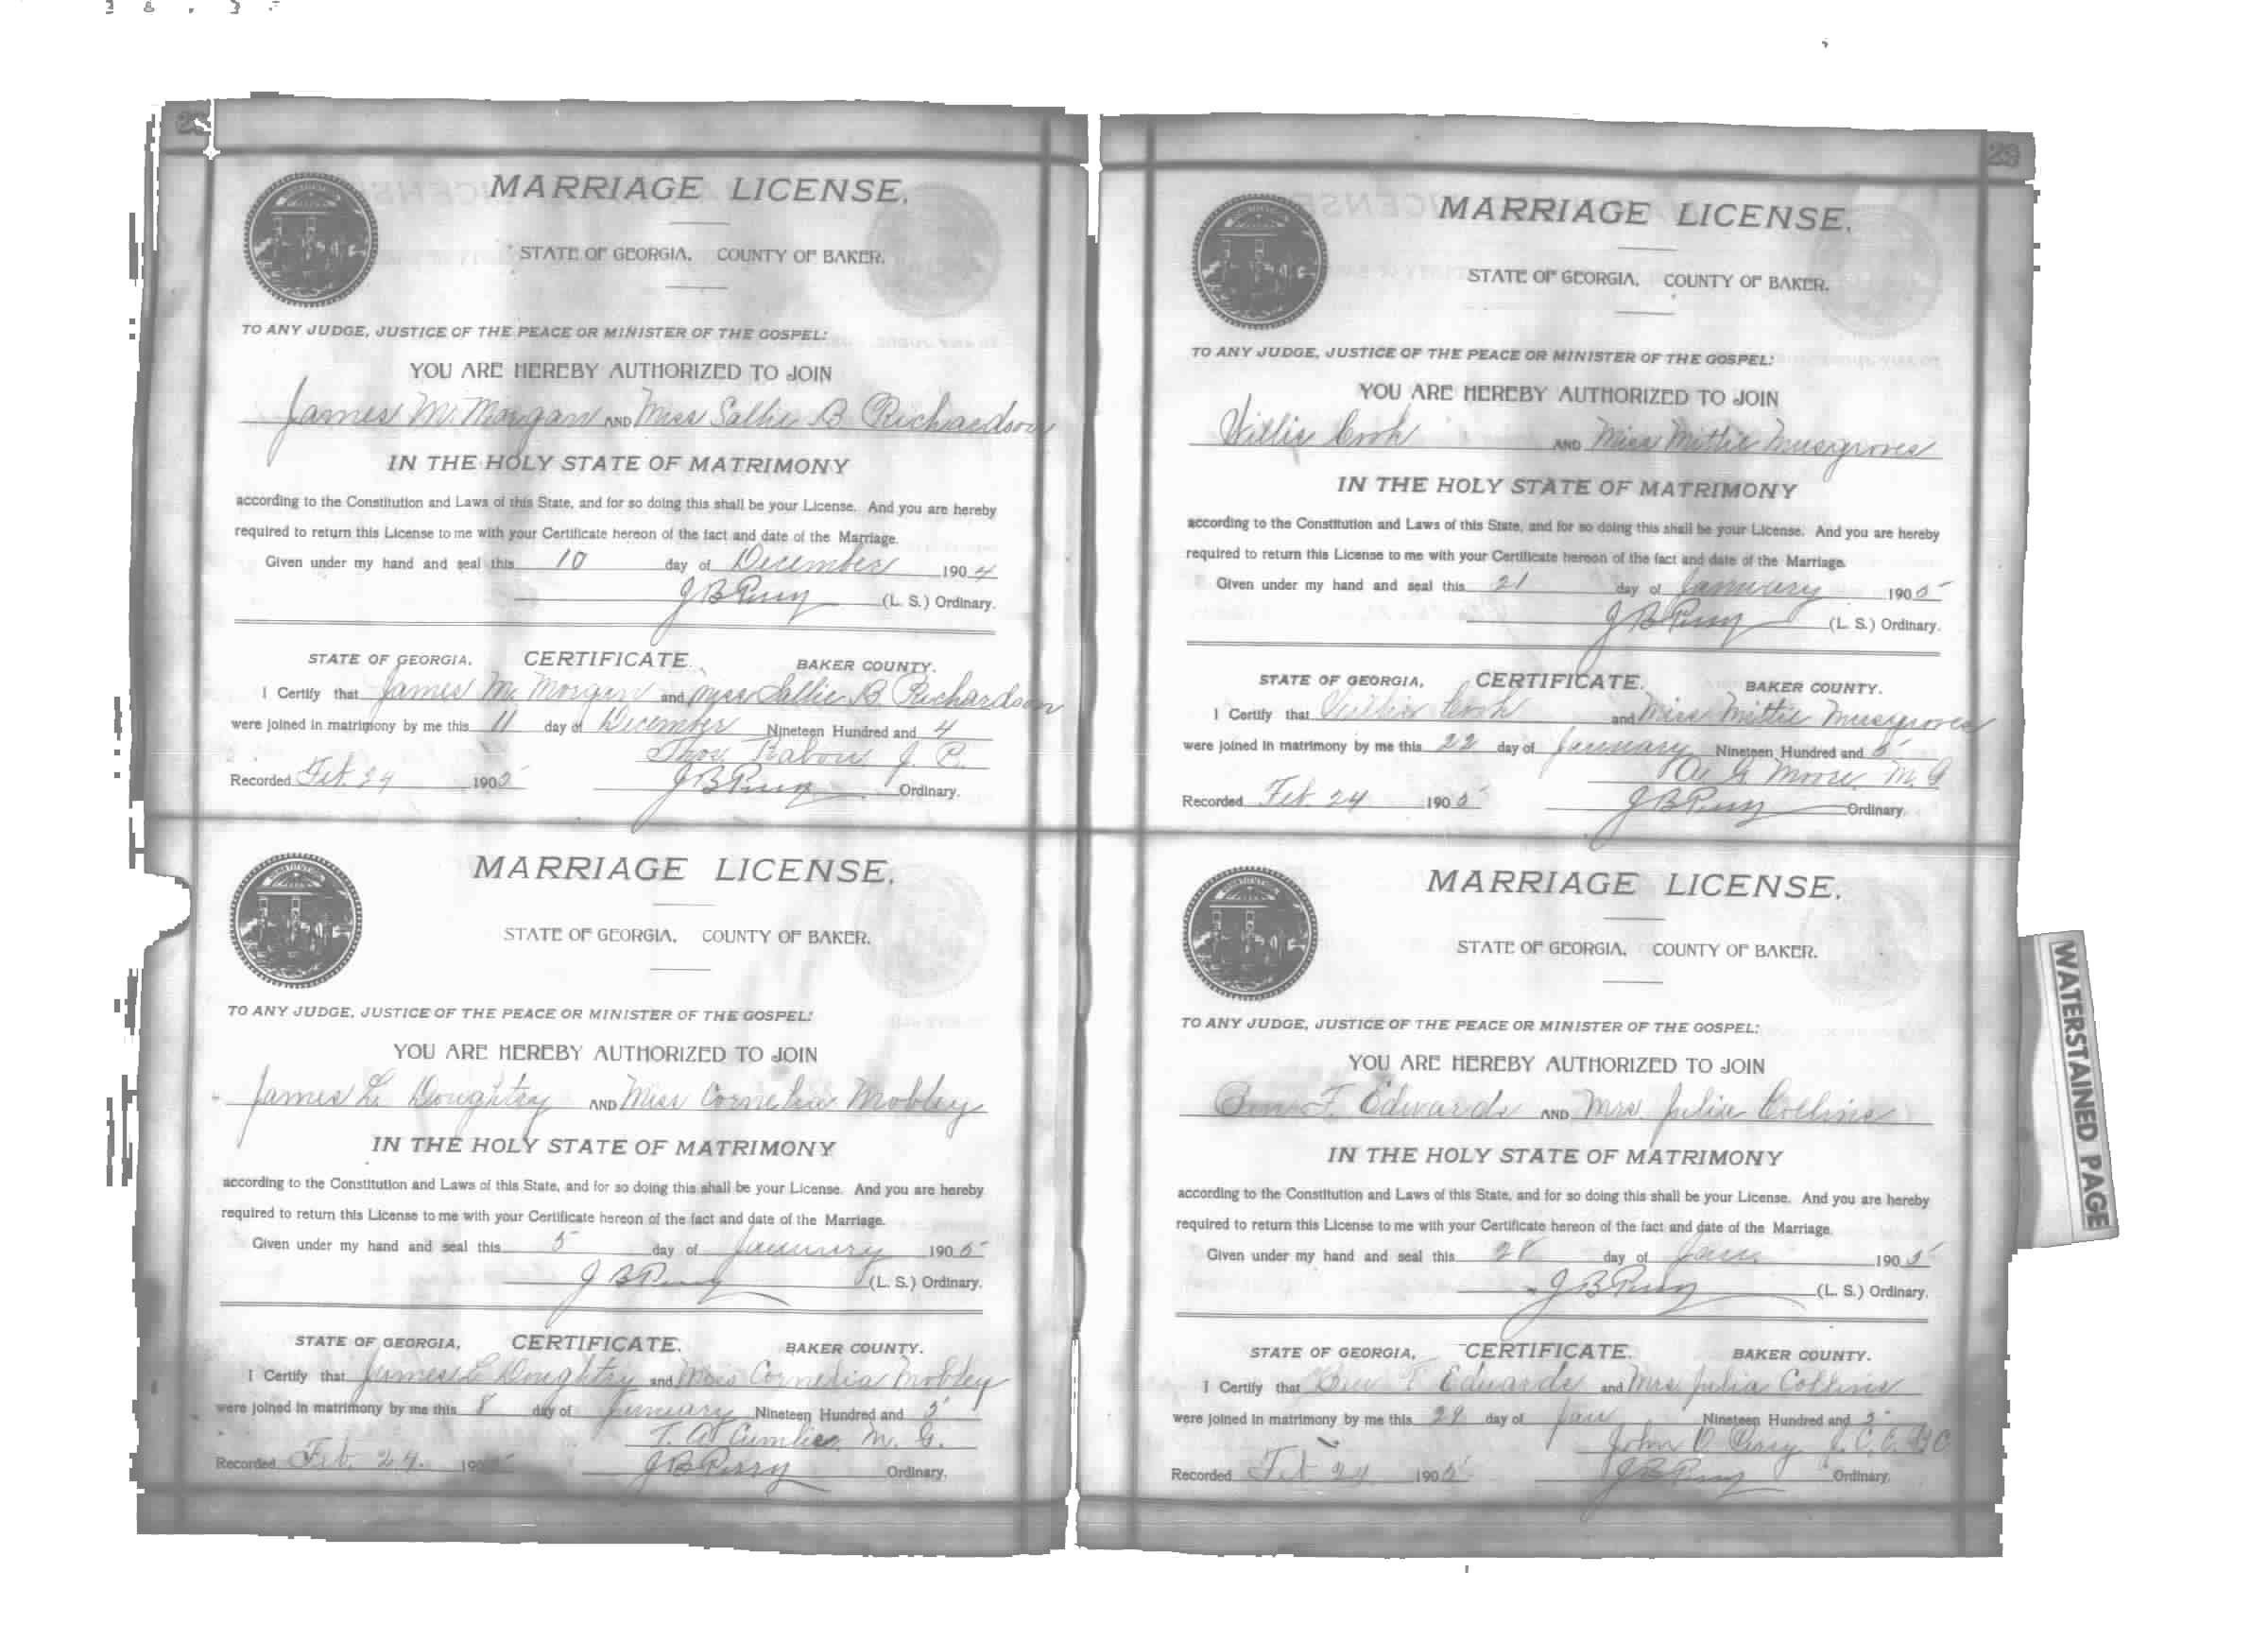 MARRIAGE LICENSE.
STATE OF GEORGIA, COUNTY OF BAKER.
TO ANY JUDGE, JUSTICE OF THE PEACE OR MINISTER OF THE GOSPEL:
YOU ARE HEREBY AUTHORIZED TO JOIN
James M. Morgan AND Miss Sallie B Richardson
IN THE HOLY STATE OF MATRIMONY
according to the Constitution and Laws of this State, and for so doing this shall be your License. And you are hereby
required to return this License to me with your Certificate hereon of the fact and date of the Marriage.
Given under my hand and seal this 10 day of December 1904
J B Perry (L. S.) Ordinary.
STATE OF GEORGIA, CERTIFICATE. BAKER COUNTY.
I Certify that James M. Morgan and Miss Sallie B Richardson
were joined in matrimony by me this 11 day of December Nineteen Hundred and 4
Thos J. P.
Recorded Feb. 24 1905 J B Perry Ordinary.
MARRIAGE LICENSE.
STATE OF GEORGIA, COUNTY OF BAKER.
TO ANY JUDGE, JUSTICE OF THE PEACE OR MINISTER OF THE GOSPEL:
YOU ARE HEREBY AUTHORIZED TO JOIN
James L. Doughtry AND Miss Cornelia Mobley
IN THE HOLY STATE OF MATRIMONY
according to the Constitution and Laws of this State, and for so doing this shall be your License. And you are hereby
required to return this License to me with your Certificate hereon of the fact and date of the Marriage.
Given under my hand and seal this 5 day of January 1905
J B Perry (L. S.) Ordinary.
STATE OF GEORGIA, CERTIFICATE. BAKER COUNTY.
I Certify that James L Doughtry and Miss Cornelia Mobley
were joined in matrimony by me this 8 day of January Nineteen Hundred and 5
T. A. M. G.
Recorded Feb. 24. 1905 J B Perry Ordinary.
29
MARRIAGE LICENSE.
STATE OF GEORGIA, COUNTY OF BAKER.
TO ANY JUDGE, JUSTICE OF THE PEACE OR MINISTER OF THE GOSPEL:
YOU ARE HEREBY AUTHORIZED TO JOIN
Willie Cook AND Miss Mittie Musgroves
IN THE HOLY STATE OF MATRIMONY
according to the Constitution and Laws of this State, and for so doing this shall be your License. And you are hereby
required to return this License to me with your Certificate hereon of the fact and date of the Marriage.
Given under my hand and seal this 21 day of January 1905
J B Perry (L. S.) Ordinary.
STATE OF GEORGIA, CERTIFICATE. BAKER COUNTY.
I Certify that Willie Cook and Miss Mittie Musgroves
were joined in matrimony by me this 22 day of January Nineteen Hundred and 5
G Moore M. G
Recorded Feb. 24 1905 J B Perry Ordinary.
MARRIAGE LICENSE.
STATE OF GEORGIA, COUNTY OF BAKER.
TO ANY JUDGE, JUSTICE OF THE PEACE OR MINISTER OF THE GOSPEL:
YOU ARE HEREBY AUTHORIZED TO JOIN
Ben F. Edwards AND Mrs. Julia Collins
IN THE HOLY STATE OF MATRIMONY
according to the Constitution and Laws of this State, and for so doing this shall be your License. And you are hereby
required to return this License to me with your Certificate hereon of the fact and date of the Marriage.
Given under my hand and seal this 28 day of Jan. 1905
J B Perry (L. S.) Ordinary.
STATE OF GEORGIA, CERTIFICATE. BAKER COUNTY.
I Certify that Ben F. Edwards and Mrs Julia Collins
were joined in matrimony by me this 29 day of Jan Nineteen Hundred and 5
John O Perry J. C. C. B C
Recorded Feb 24 1905 J B Perry Ordinary.
WATERSTAINED PAGE